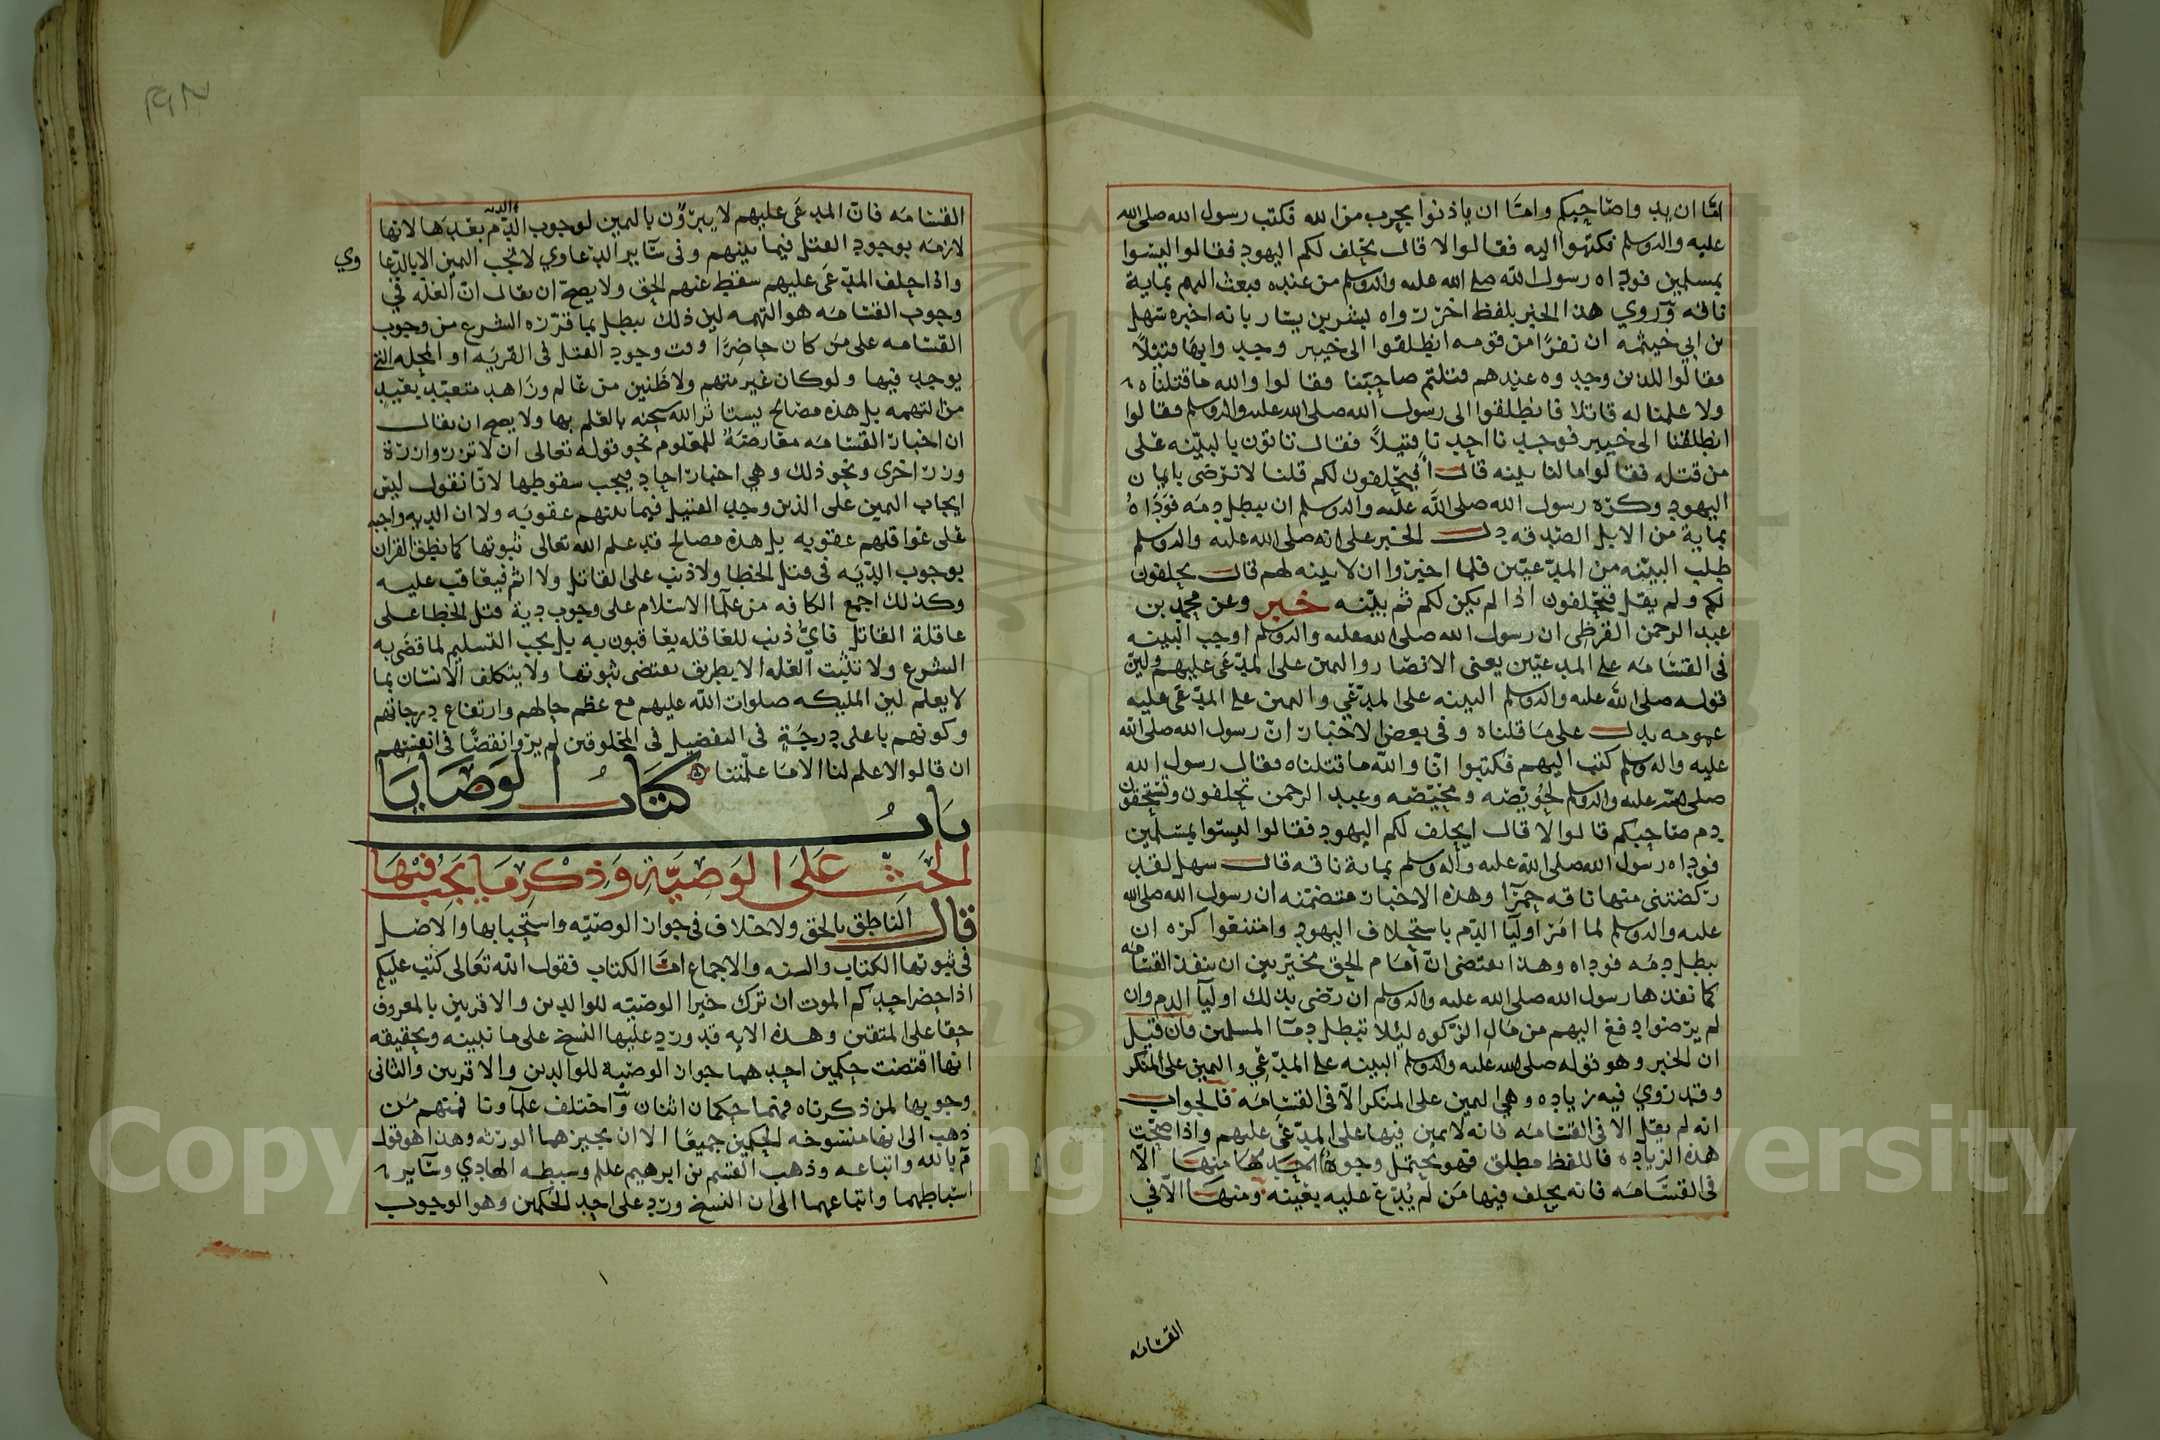 اما ان يدوا صاحبكم واما ان ياذنوا بحرب من الله فكتب رسول الله صلى الله
عليه واله وسلم فكتبوا اليه فقالوا لا قال يحلف لكم اليهود فقالوا ليسوا
بمسلمين فوداه رسول الله صلى الله عليه واله وسلم من عنده فبعث اليهم بماية
ناقه وروي هذا الخبر بلفظ اخر رواه بشر بن يسار بانه اخبره سهل
بن ابي خيثمه ان نفرا من قومه انطلقوا الى خيبر وجدوا بها قتيلا
فقالوا للذين وجدوه عندهم قتلتم صاحبنا فقالوا والله ما قتلناه
ولا علمنا له قاتلا فانطلقوا الى رسول الله صلى الله عليه واله وسلم فقالوا
انطلقنا الى خيبر فوجدنا احدنا قتيلا فقال تاتون بالبينه على
من قتله فقالوا ما لنا بينه قال أفيحلفون لكم قلنا لا نرضى بايمان
اليهود وكره رسول الله صلى الله عليه واله وسلم ان يبطل دمه فوداه
بماية من الابل الصدقه دل الخبر على انه صلى الله عليه واله وسلم
طلب البينه من المدعين فلما اخبروا ان لا بينه لهم قال يحلفون
لكم ولم يقل فتحلفون اذا لم يكن لكم ثم بينه خبر وعن محمد بن
عبد الرحمن القرظي ان رسول الله صلى الله عليه واله وسلم اوجب البينه
في القسامه على المدعين يعني الانصار واليمن على المدعى عليهم ولان
قوله صلى الله عليه واله وسلم البينه على المدعي واليمن على المدعى عليه
عمومه يدل على ما قلناه وفي بعض الاخبار ان رسول الله صلى الله
عليه واله وسلم كتب اليهم فكتبوا انا والله ما قتلناه فقال رسول الله
صلى الله عليه واله وسلم لحويصه ومحيصه وعبد الرحمن تحلفون وتستحقون
دم صاحبكم قالوا لا قال ايحلف لكم اليهود فقالوا ليسوا بمسلمين
فوداه رسول الله صلى الله عليه واله وسلم بماية ناقه قال سهل لقد
ركضتني منها ناقه حمرا وهذه الاخبار متضمنه ان رسول الله صلى الله
عليه واله وسلم لما امر اوليا الدم باستحلاف اليهود وامتنعوا كره ان
يبطل دمه فوداه وهذا يقتضي ان امام الحق مخير بين ان ينفذ القسامه
كما نفذها رسول الله صلى الله عليه واله وسلم ان رضى بذلك اوليا الدم وان
لم يرضوا دفع اليهم من مال الزكوه ليلا تبطل دما المسلمين فان قيل
ان الخبر وهو قوله صلى الله عليه واله وسلم البينه على المدعي واليمين على المنكر
وقد روي فيه زياده وهي اليمين على المنكر الا في القسامه فالجواب
انه لم يقل الا في القسامه فانه لا يمين فيها على المدعى عليهم واذا صحت
هذه الزياده فاللفظ مطلق فهو يحتمل وجوها احدها منها الا
في القسامه فانه يحلف فيها من لم يدع عليه بعينه ومنها الا في
القسامه
القسامه فان المدعى عليهم لا يبرؤن باليمين لوجوب الديه بعدها لانها
لازمه بوجود القتل فيما بينهم وفي ساير الدعاوي لا تجب اليمين الا بالدعا
وي
واذا حلف المدعى عليهم سقط عنهم الحق ولا يصح ان يقال ان العله في
وجوب القسامه هو التهمه لان ذلك يبطل بما قرره الشرع من وجوب
القسامه على من كان حاضرا وقت وجود القتل في القريه او المحله التي
يوجد فيها ولو كان غير متهم ولا ظنين من عالم وزاهد متعبد بعيد
من التهمه بل هذه مصالح يستاثر الله سبحنه بالعلم بها ولا يصح ان يقال
ان اخبار القسامه معارضة للمعلوم نحو قوله تعالى ان لا تزر وازرة
وزر اخرى ونحو ذلك وهي اخبار احاد فيجب سقوطها لانا نقول ليس
ايجاب اليمين على الذين وجد القتيل فيما بينهم عقوبه ولا ان الديه واجبه
على عواقلهم عقوبه بل هذه مصالح قد علم الله تعالى ثبوتها كما نطق القران
بوجوب الديه في قتل الخطا ولا ذنب على القاتل ولا اثم فيعاقب عليه
وكذلك اجمع الكافه من علما الاسلام على وجوب دية قتل الخطا على
عاقلة القاتل فاي ذنب للعاقله يعاقبون به بل يجب التسليم لما قضى به
الشرع ولا تثبت العله الا بطريق يقتضي ثبوتها ولا يتكلف الانسان بما
لا يعلم لان المليكه صلوات الله عليهم مع عظم حالهم وارتفاع درجاتهم
وكونهم باعلى درجة في التفضيل في المخلوقين لم يروا نقصا في انفسهم
ان قالوا لا علم لنا الا ما علمتنا
كتاب الوصايا
باب
الحث على الوصية وذكر ما يجب فيها
قال الناطق بالحق ولا خلاف في جواز الوصيه واستحبابها والاصل
في ثبوتها الكتاب والسنه والاجماع اما الكتاب فقول الله تعالى كتب عليكم
اذا حضر احدكم الموت ان ترك خيرا الوصيه للوالدين والاقربين بالمعروف
حقا على المتقين وهذه الايه قد ورد عليها النسخ على ما نبينه وبحقيقه
انها اقتضت حكمين احدهما جواز الوصية للوالدين والاقربين والثاني
وجوبها لمن ذكرناه فهما حكمان اثنان واختلف علماونا فمنهم من
ذهب الى انها منسوخه الحكمين جميعا الا ان يجيزهما الورثه وهذا هو قول
م بالله واتباعه وذهب القسم بن ابرهيم علم وسبطه الهادي وساير
اسباطهما واتباعهما الى ان النسخ ورد على احد الحكمين وهو الوجوب